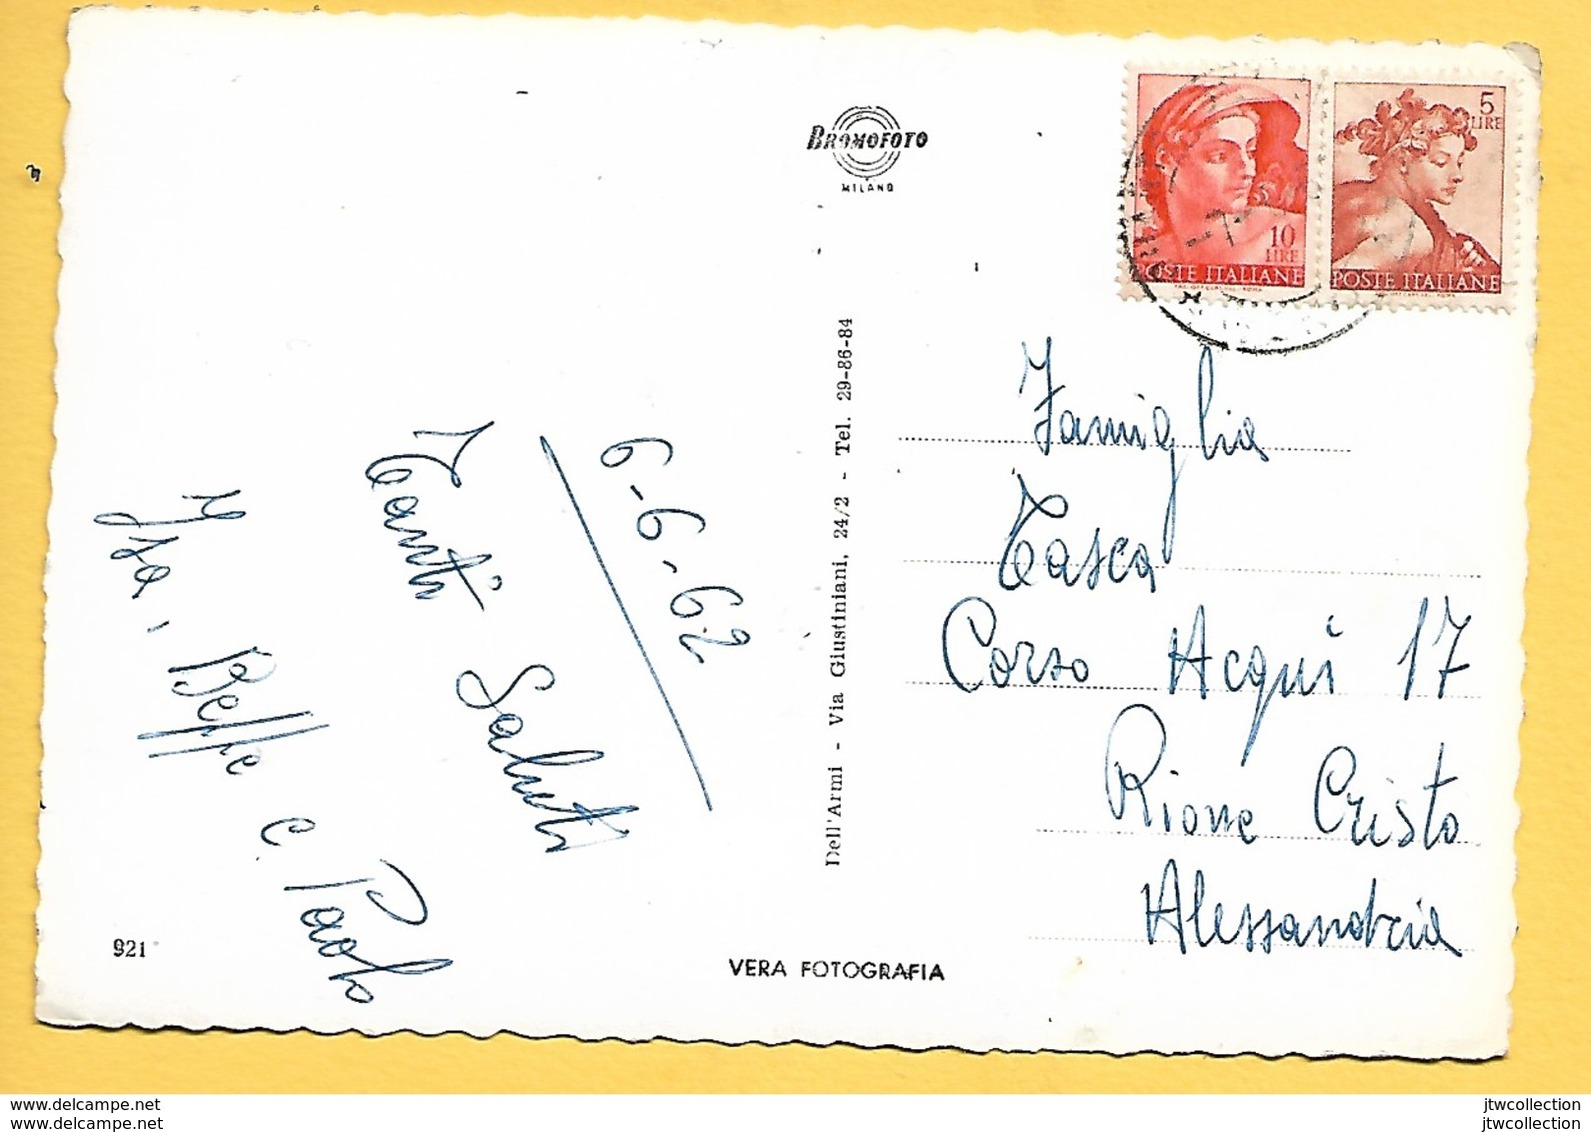 BROMOFOTO
MILANO
10
LIRE
POSTE ITALIANE
5
LIRE
POSTE ITALIANE
6-6-62
Tanti Saluti
Isa, Beppe e Paolo
Dell'Armi - Via Giustiniani, 24/2 - Tel. 29-86-84
Famiglia
Tasca
Corso Acqui 17
Rione Cristo
Alessandria
921
VERA FOTOGRAFIA
www.delcampe.net
jtwcollection
www.delcampe.net
jtwcollection